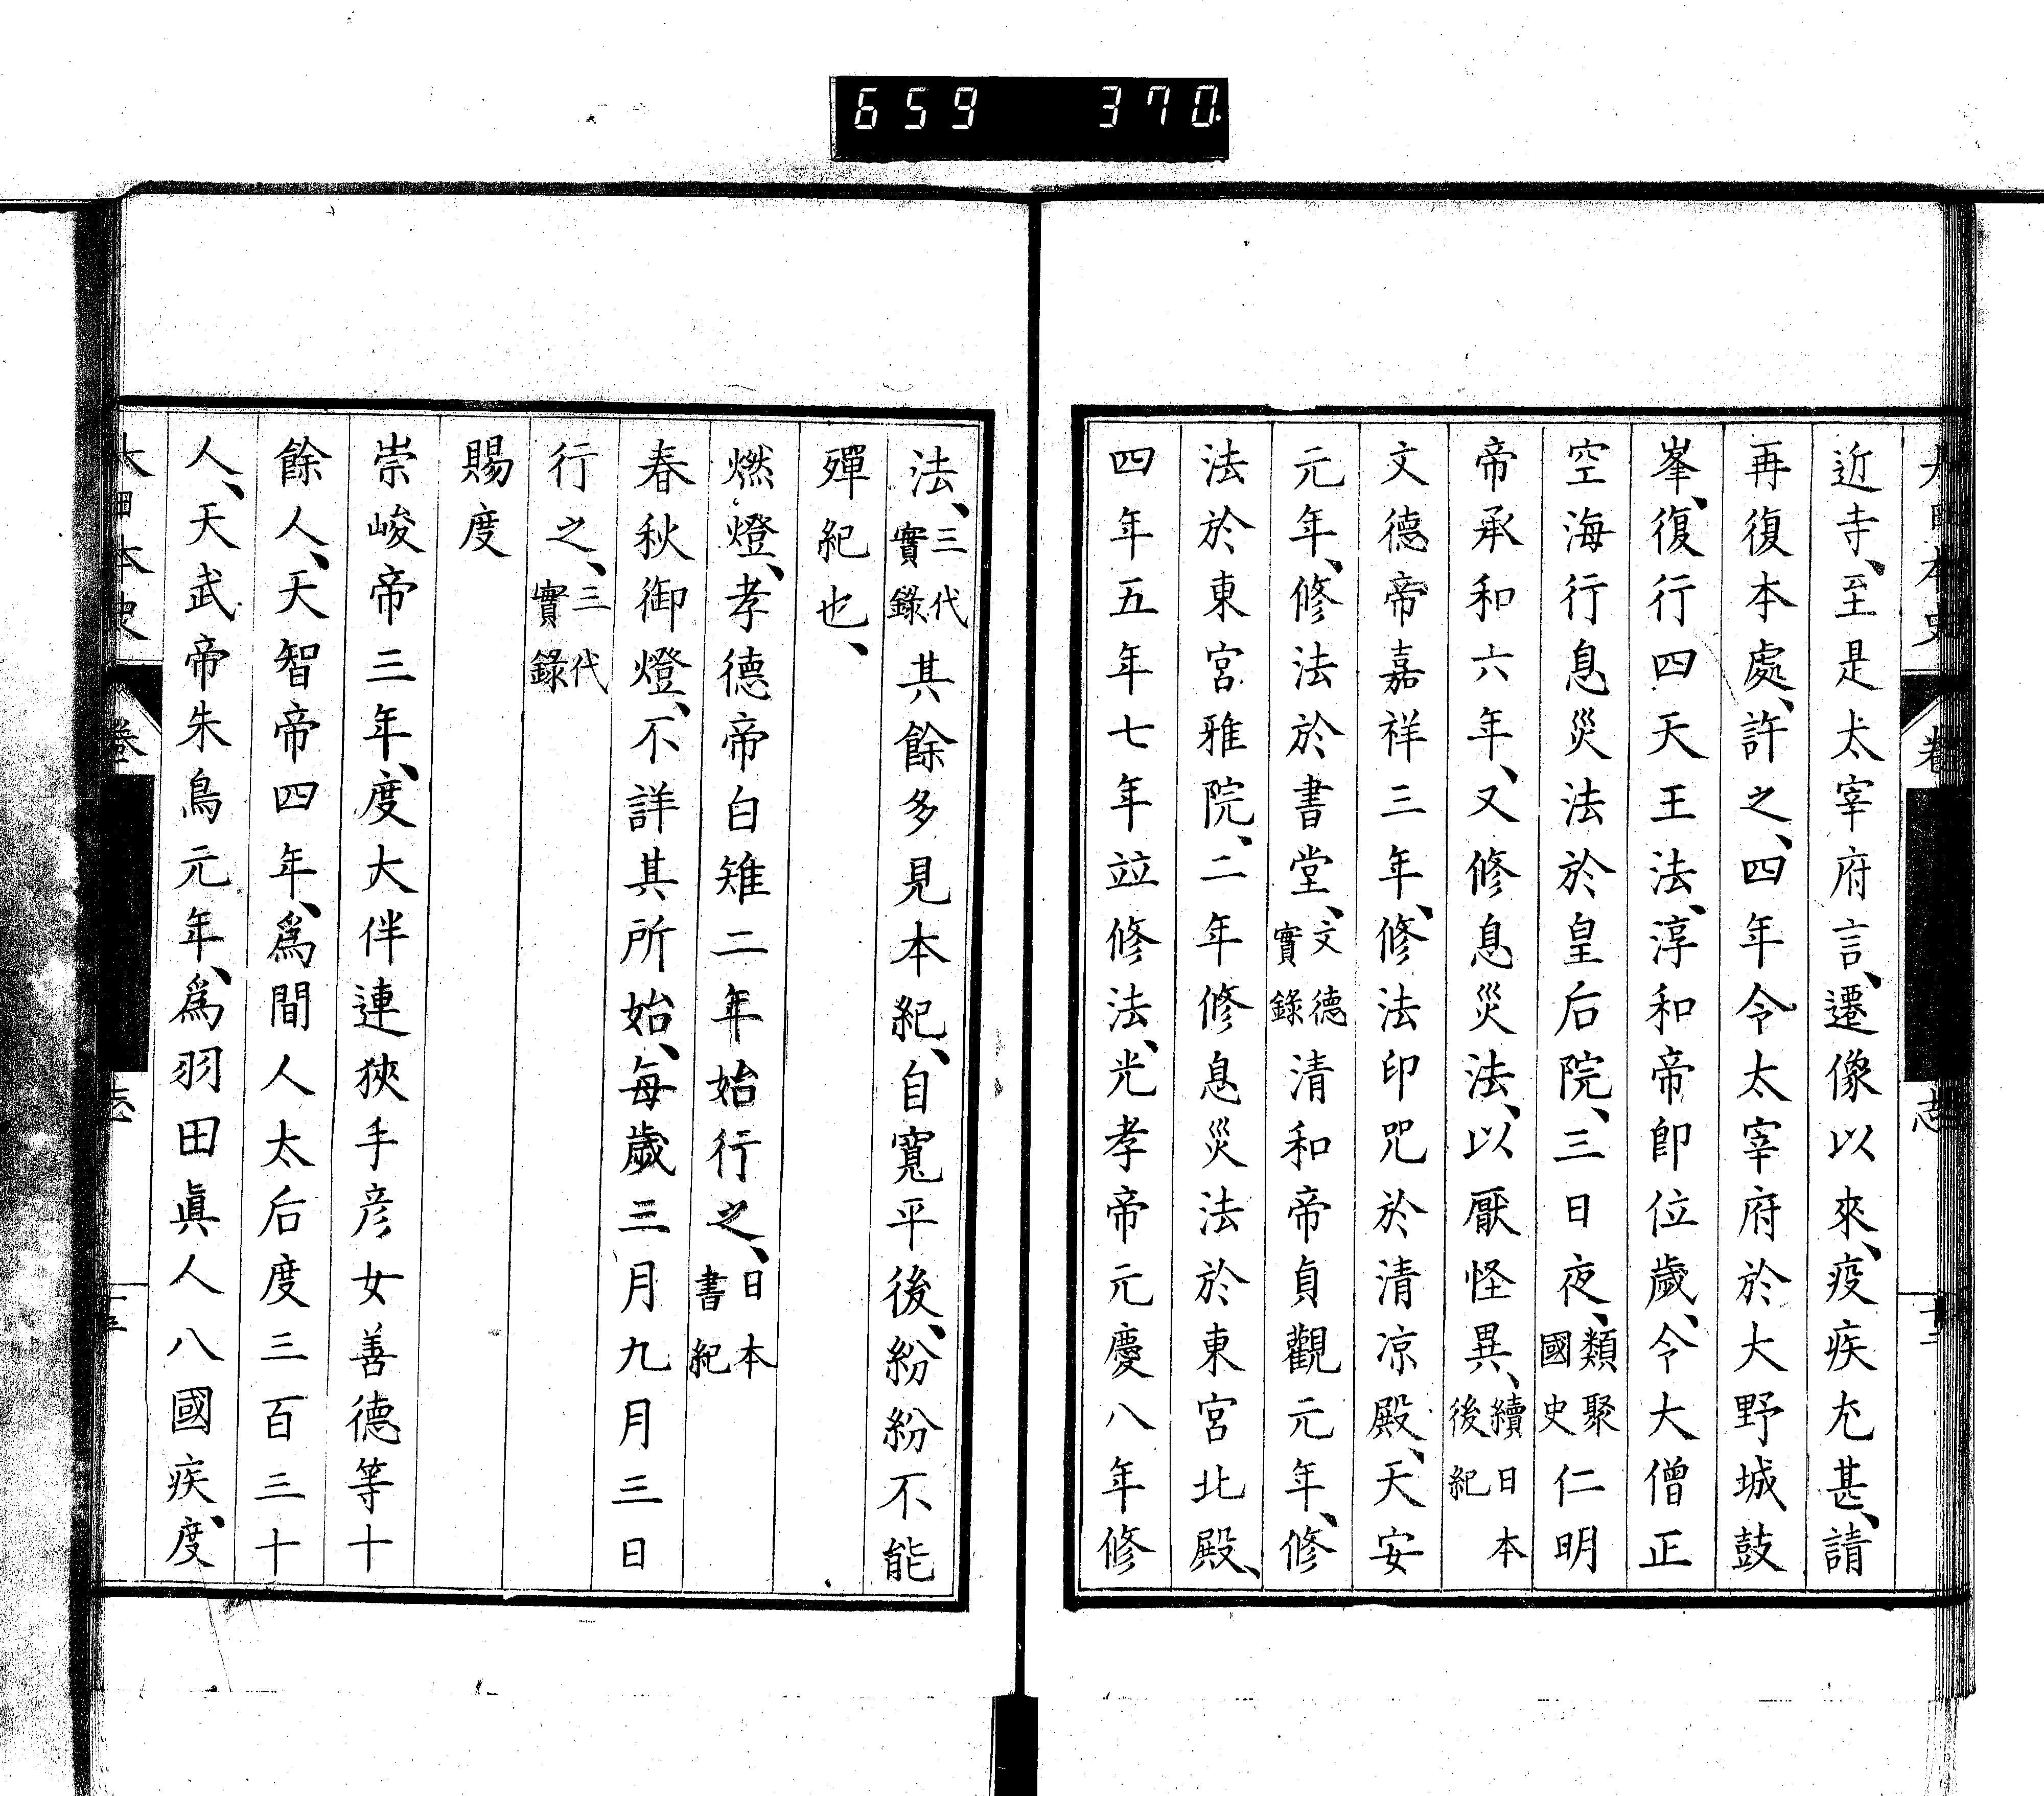 659 370
近寺、至是太宰府言、遷像以來、疫疾尤甚、請
再復本處、許之、四年令太宰府於大野城鼓
峯、復行四天王法、淳和帝卽位歲、令大僧正
空海行息災法於皇后院、三日夜、類聚國史仁明
帝承和六年、又修息災法、以厭怪異、續日本後紀
文德帝嘉祥三年、修法印咒於清凉殿、天安
元年、修法於書堂、文德實錄清和帝貞觀元年、修
法於東宮雅院、二年修息災法於東宮北殿、
四年五年七年竝修法、光孝帝元慶八年修
法、三代實錄其餘多見本紀、自寬平後、紛紛不能
殫紀也、
燃燈、孝德帝白雉二年始行之、日本書紀
春秋御燈、不詳其所始、每歲三月九月三日
行之、三代實錄
賜度
崇峻帝三年、度大伴連狹手彥女善德等十
餘人、天智帝四年、爲間人太后度三百三十
人、天武帝朱鳥元年、爲羽田眞人八國疾、度
大日本史 卷 志